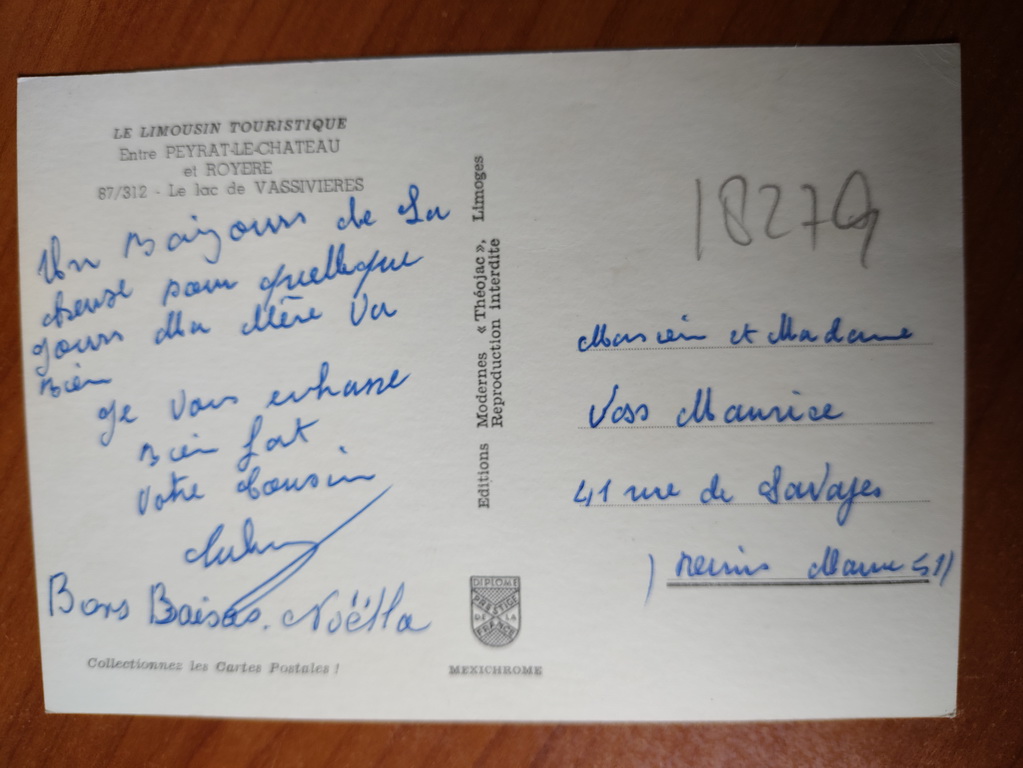 LE LIMOUSIN TOURISTIQUE
Entre PEYRAT-LE-CHATEAU
et ROYERE
87/312 - Le lac de VASSIVIERES
Un Baizours de La
Creuse pour quellque
Jours Ma Mère Va
Bien
Je Vous enbrasse
Bien fort
Votre Cousin
Bons Baises. Noëlla
Collectionnez les Cartes Postales !
Editions Modernes « Théojac », Limoges
Reproduction interdite
DIPLOME
PRESTIGE
DE LA
FRANCE
MEXICHROME
18279
Monsieur et Madame
Voss Maurice
41 rue de Savoyes
) Reims Marne 51)